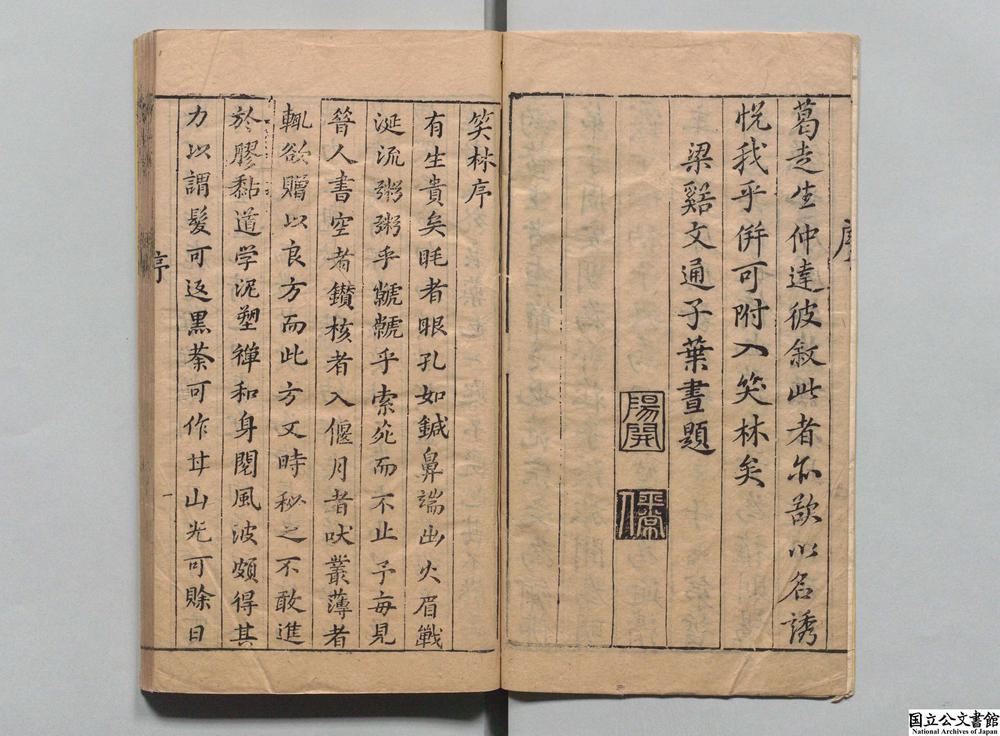 序
葛走生仲達彼敘此者亦欲以名誘
悅我乎併可附入笑林矣
梁谿文通子葉晝題
陽開
笑林序
有生貴矣眊者眼孔如鍼鼻端出火眉戰
涎流粥粥乎虩虩乎索死而不止予每見
晉人書空者鑚核者入偃月者吠叢薄者
輒欲贈以良方而此方又時秘之不敢進
於膠黏道学泥塑禪和身閱風波頗得其
力以謂髮可返黒荼可作甘山光可賒日
序
一
国立公文書館
National Archives of Japan